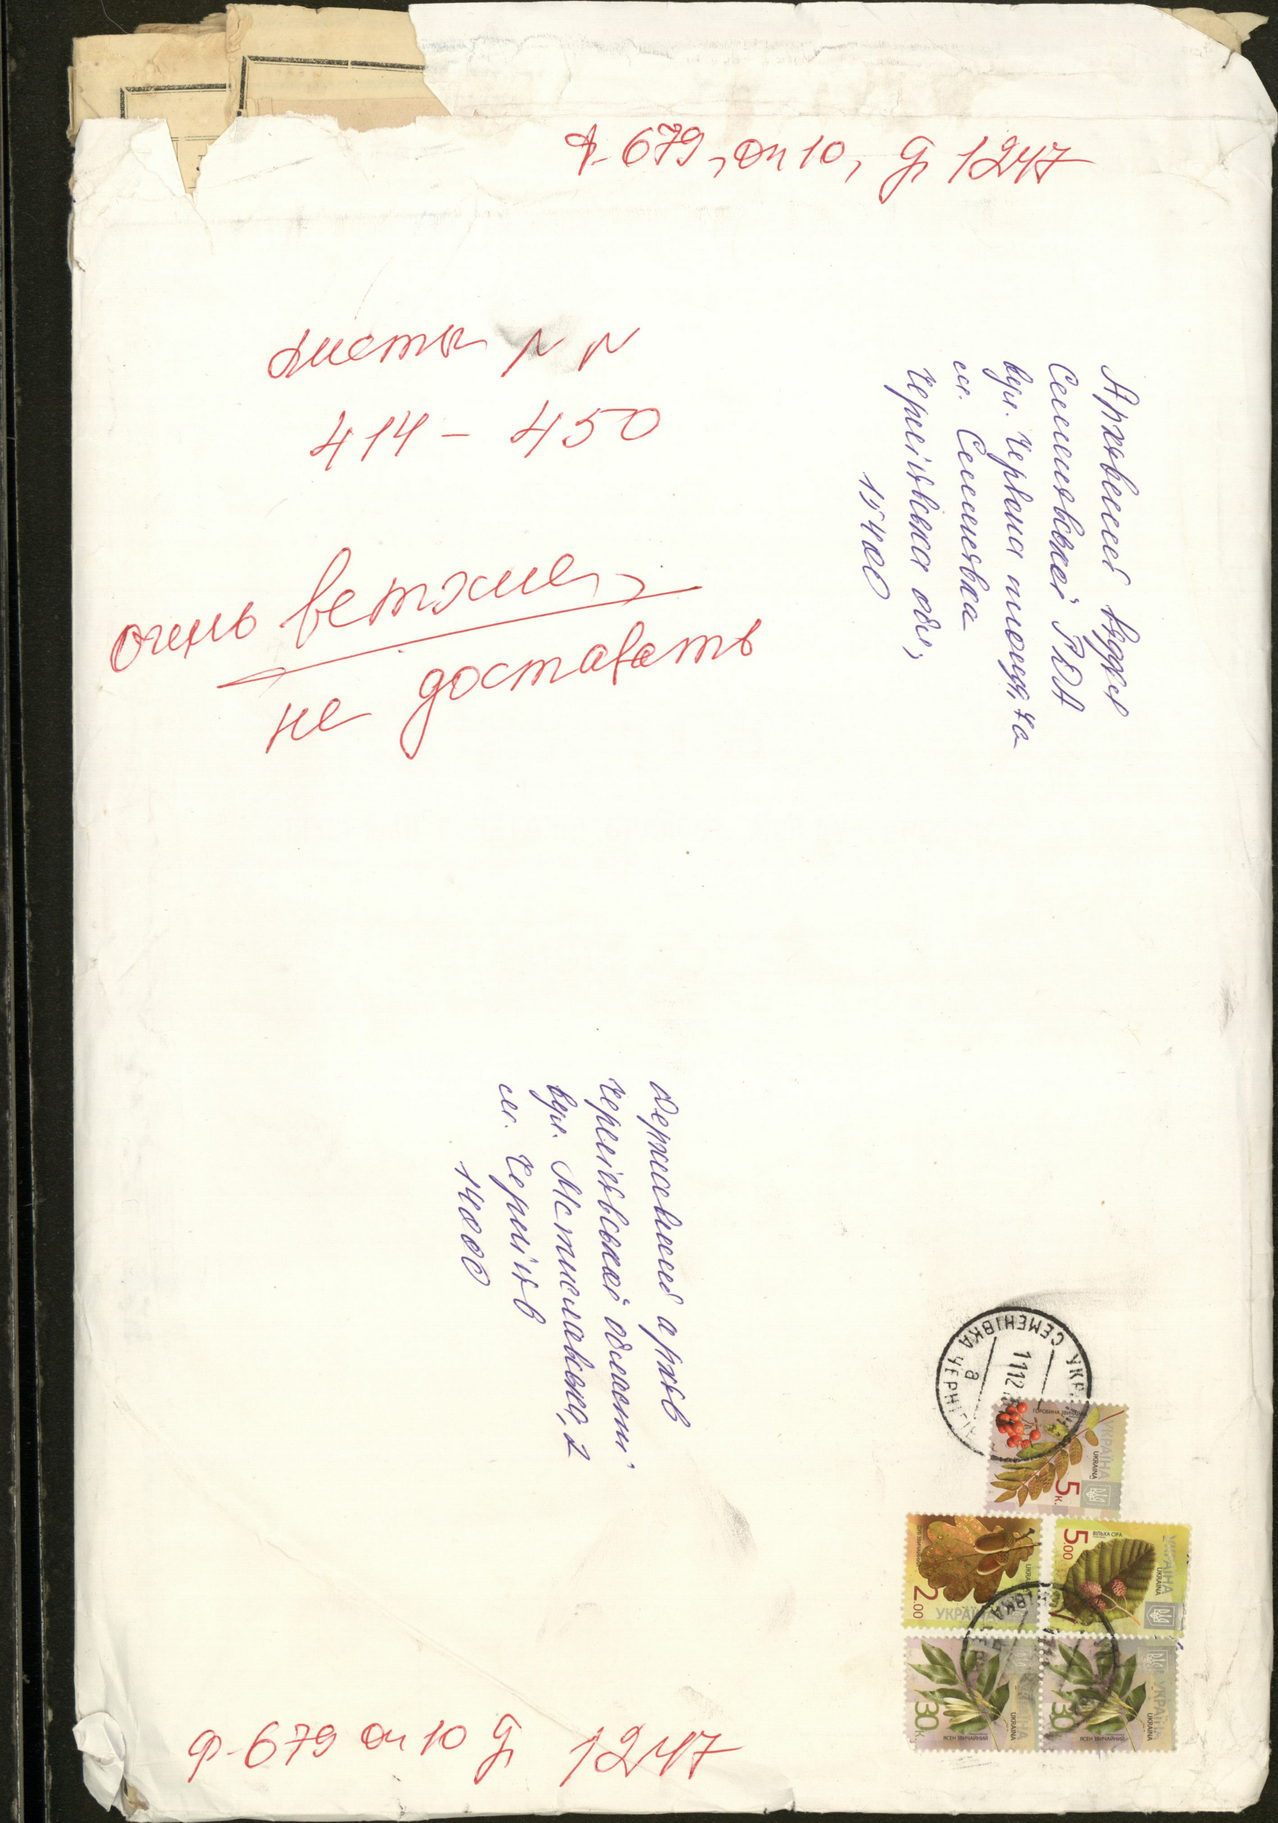 Ф-679, оп 10, д 1247
листы N N
414 - 450
очень ветхие,
не доставать
Архівний відділ
Семенівської РДА
вул. Червона площа,
м. Семенівка
Чернігівська обл,
15400
Державний архів
Чернігівської області
вул. Мстиславська, 2
м. Чернігів
14000
СЕМЕНІВКА ЧЕРНІГІВ
8
ГОРОБИНА ЗВИЧАЙНА
УКРАЇНА
UKRAINA
5к.
2.00
УКРАЇНА
5.00
ВІЛЬХА СІРА
УКРАЇНА
UKRAINA
30к
UKRAINA
ЯСЕН ЗВИЧАЙНИЙ
30
УКРАЇНА
UKRAINA
ЯСЕН ЗВИЧАЙНИЙ
Ф-679 оп 10 д 1247